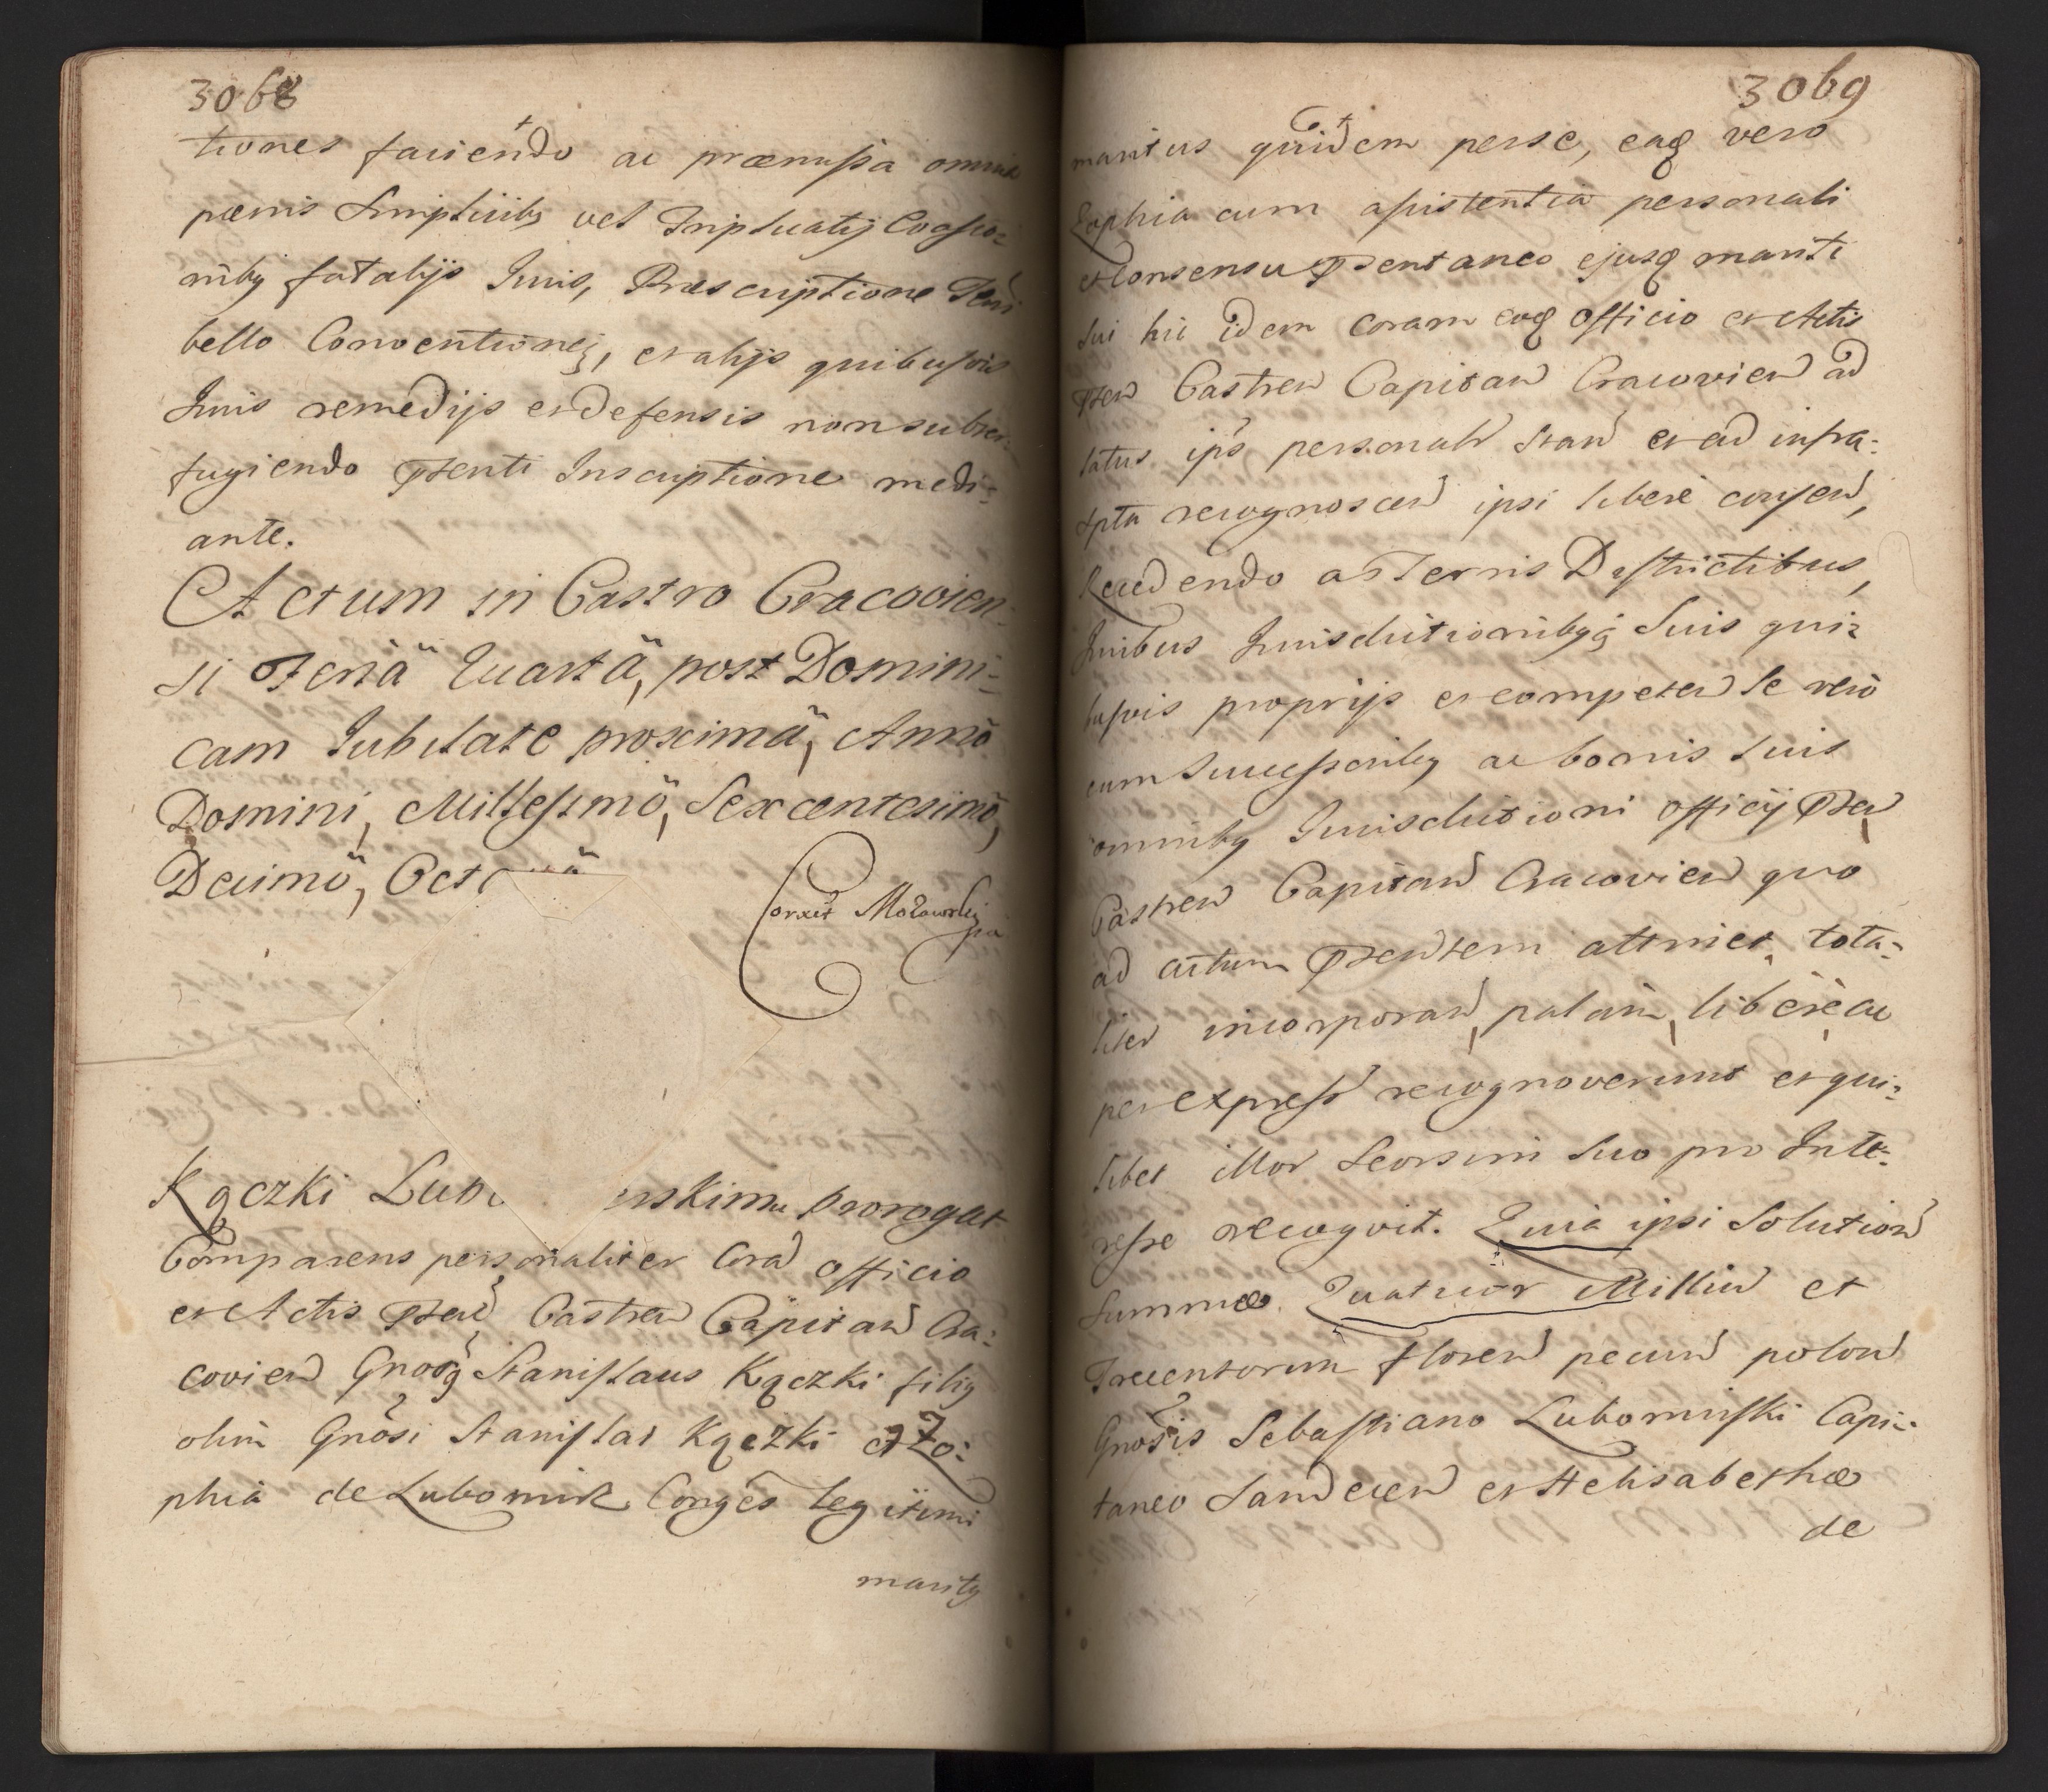 3068
tiones faciendo ac præmissa omnia
pœnis simplicibꝫ vel Triplicatis Evasio=
nibꝫ fatalijs Juris, Præscriptione Terri
bello Conventioneꝫ, et alijs quibusvis
Juris remedijs et defensis non subter=
fugiendo pʀsenti Inscriptione medi=
ante.
Actum in Castro Cracovien=
si Feria Quarta, post Domini=
cam Jubilate proxima, Anno
Domini, Millessimo, Sexcentesimo,
Decimo, Oct
Correxit Mozowski
Kączki Lub erskimu prorogat
Comparens personaliter Cora officio
et Actis pʀsen Castren Capitan Cra=
covien Gnosꝫ Stanislaus Kączki filiꝫ
olim Gnosi Stanislai Kączki et Zo=
phia de Lubomirz Conges legitimi
maritꝫ
3069
maritus quidem per se, eaqꝫ vero
Zophia cum assistentia personali
et Consensu pʀsentaneo ejusqꝫ mariti
sui hic idem coram eoqꝫ officio et Actis
pʀsen Castren Capitan Cracovien ad
latus ips personalr stan et ad infra=
spta recognoscen ipsi libere consen,
Recedendo a Terris Districtibus,
Juribus Jurisdictionibꝫqꝫ Suis qui=
busvis proprijs et competen se vero
cum Successoribꝫ ac bonis suis
omnibꝫ Jurisdictioni officij pʀsen
Castren Capitan Cracovien quo
ad actum pʀsentem attinet, tota=
liter incorporan, palam, libere ac
per express recognoverunt et qui=
libet illor Seorsim suo pro Inte=
resse recogvit. Quia ipsi Solution
summæ Quatuor Milliu et
Trecentorum floren pecun polon
Gnosis Sebastiano Lubomirski Capi=
taneo Sandecen et Helisabethæ
de